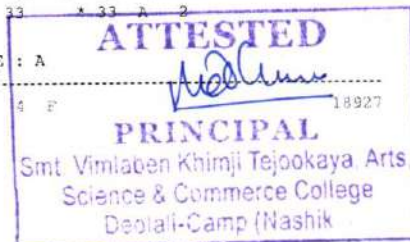 33 *33 A 2
ATTESTED
E : A
4 F 18927
PRINCIPAL
Smt. Vimlaben Khimji Tejookaya Arts,
Science & Commerce College
Deolali-Camp (Nashik